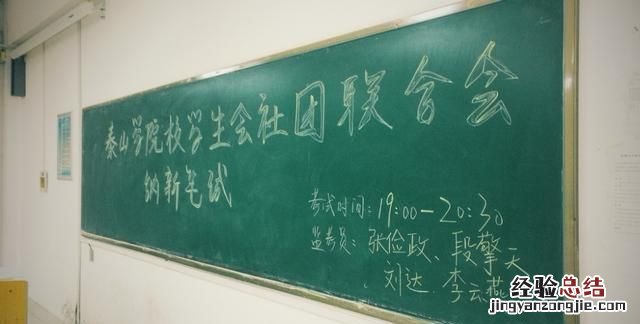 泰山学院校学生会社团联合会
纳新笔试
考试时间:19:00-20:30
监考员:张俭政、段擎天
刘达、李云燕
经验总结
jingyanzongjie.com